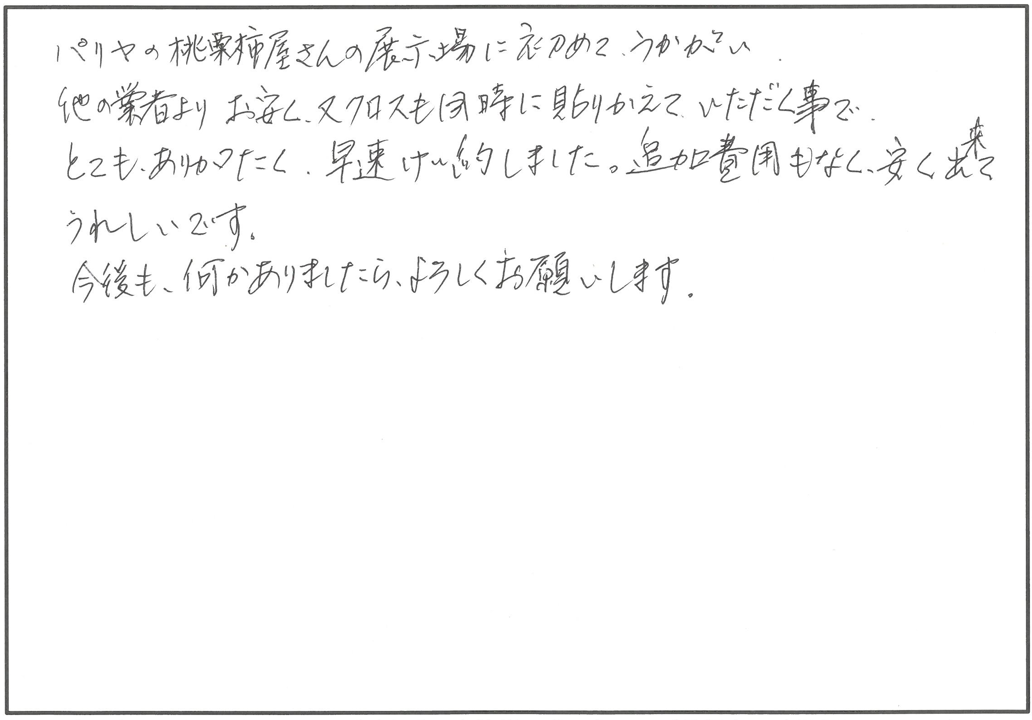 パリヤの桃栗柿屋さんの展示場に初めて、うかがい、
他の業者より お安く、又クロスも同時に貼りかえて、いただく事で、
とても、ありがたく、早速けい約しました。追加費用もなく、安く出来て
うれしいです。
今後も、何かありましたら、よろしくお願いします。